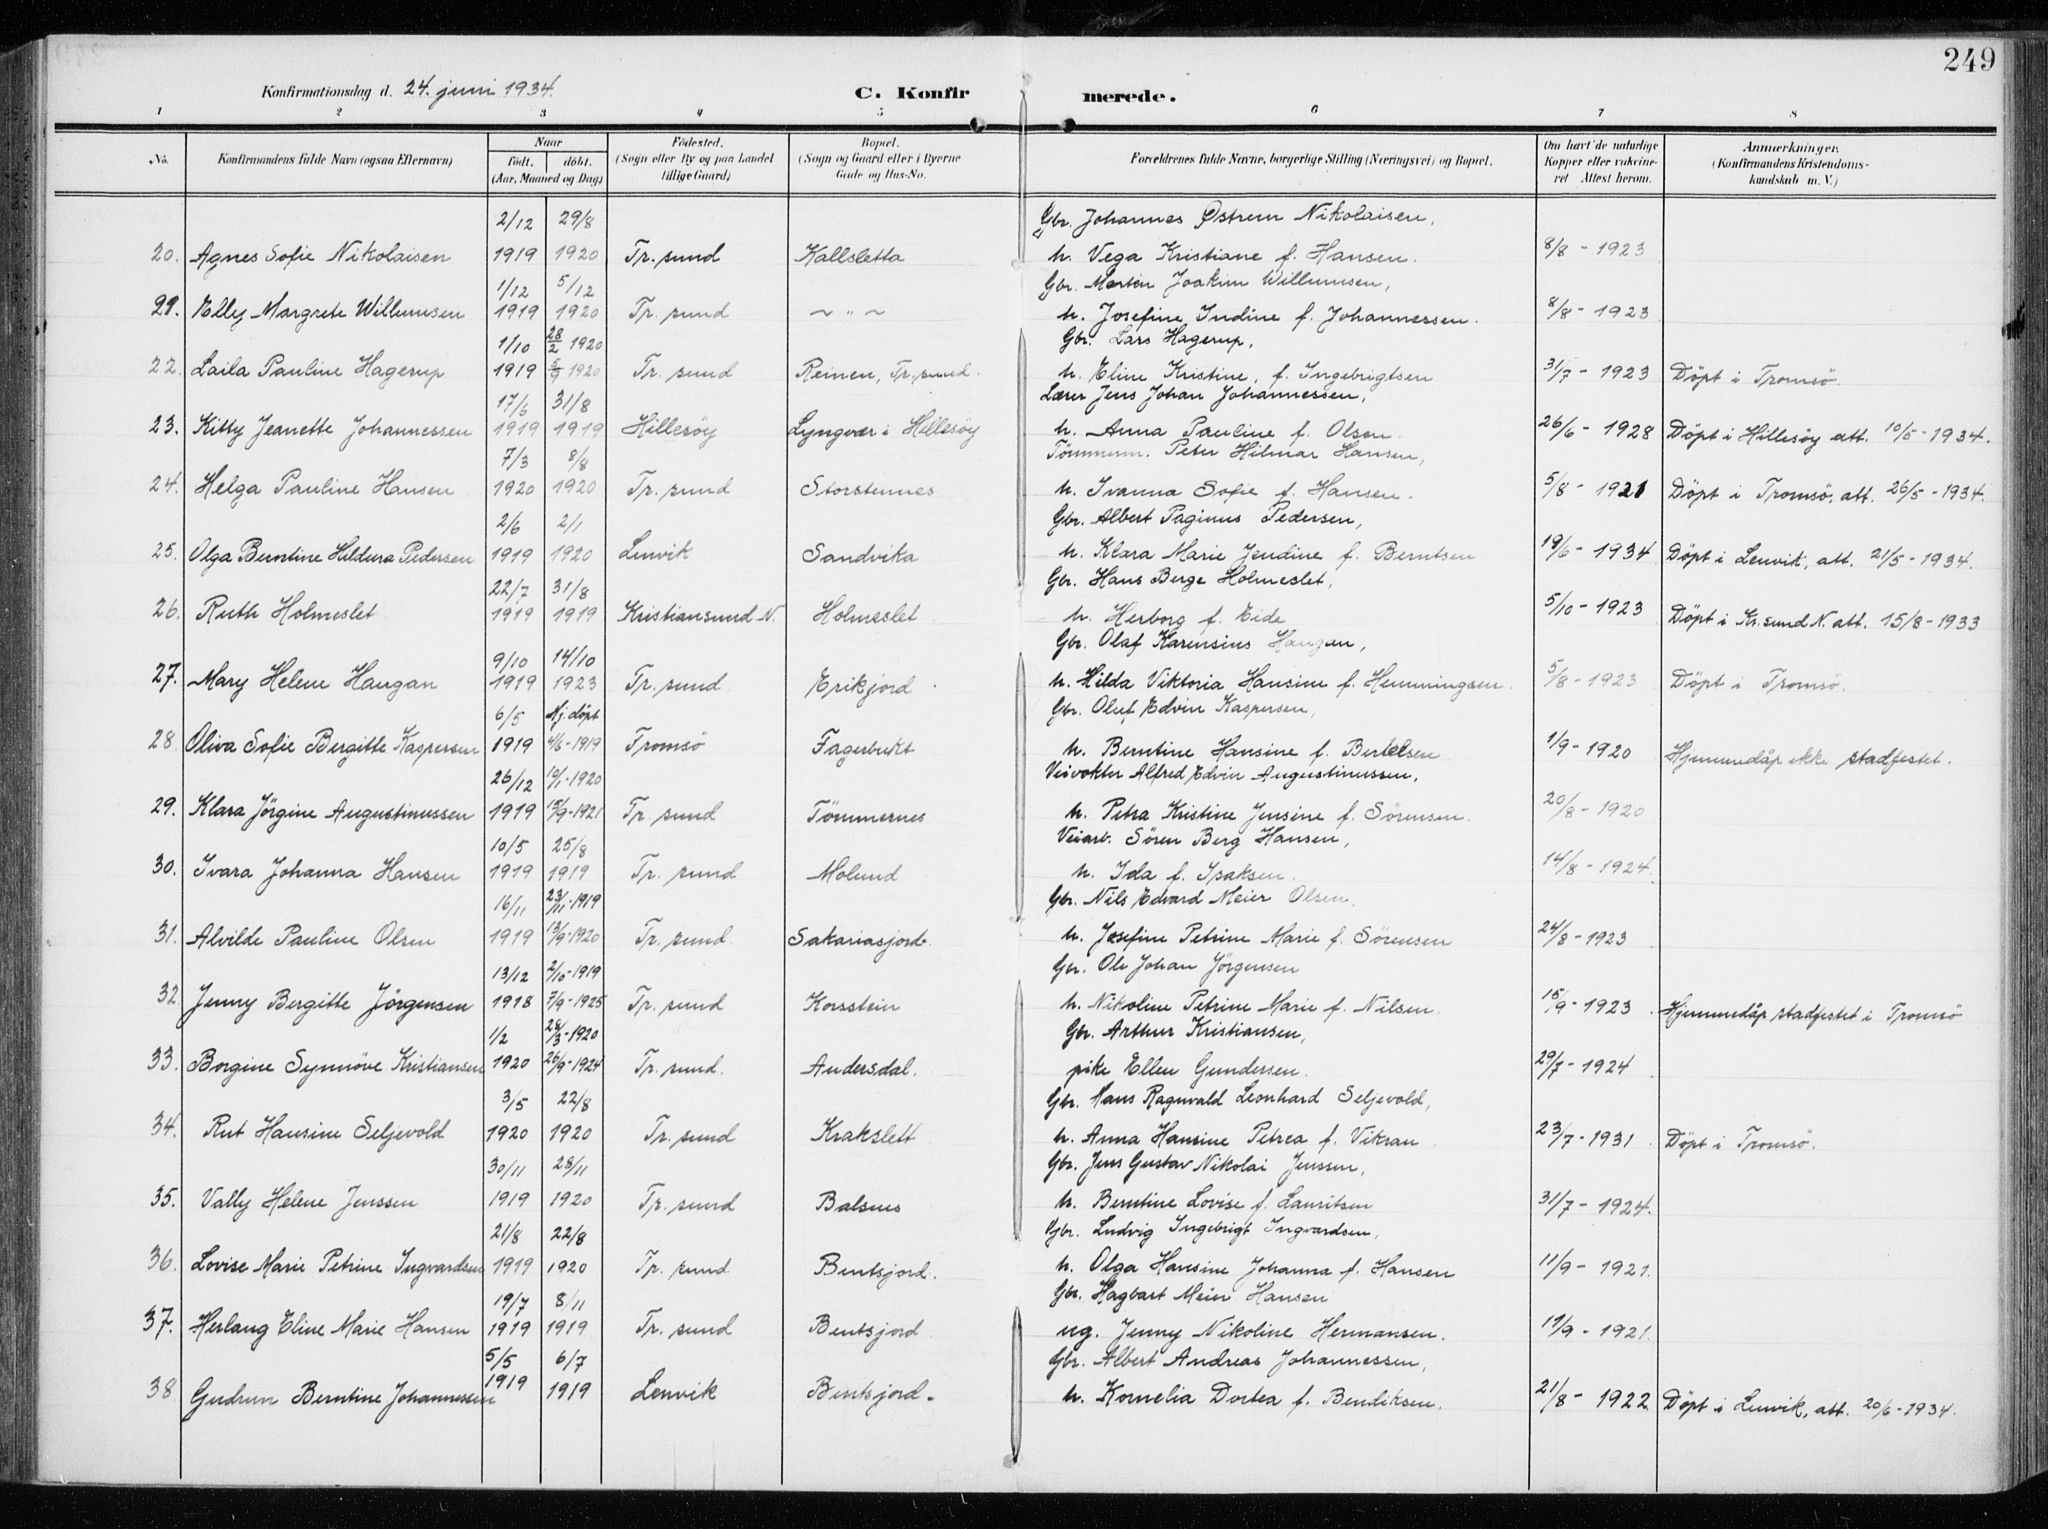 249
Konfirmationsdag d. 24. juni 1934.
C. Konfirmerede.
1 2 3 4 5 6 7 8
No. Konfirmandens fulde Navn (ogsaa Efternavn) Naar født. døbt. (Aar, Maaned og Dag) Fødested. (Sogn eller By og paa Landet tillige Gaard) Bopæl. (Sogn og Gaard eller i Byerne Gade og Hus-No. Forældrenes fulde Navne, borgerlige Stilling (Næringsvei) og Bopæl. Om havt de naturlige Kopper eller vakcineret Attest herom. Anmærkninger. (Konfirmandens Kristendomskundskab m. V.)
2/12 29/8 Gbr. Johannes Østrem Nikolaisen,
20. Agnes Sofie Nikolaisen 1919 1920 Tr. sund Kallsletta h. Vega Kristiane f. Hansen. 8/8 - 1923
1/12 5/12 Gbr. Morten Joakim Willumsen,
21. Elly Margrete Willumsen 1919 1920 Tr. sund ~ " ~ h. Josefine Indine f. Johannessen. 8/8 - 1923
1/10 28/2 1920 Gbr. Lars Hagerup,
22. Laila Pauline Hagerup 1919 5/9 1920 Tr. sund Reinen, Tr. sund. h. Eline Kristine, f. Ingebrigtsen 31/7 - 1923 Döpt i Tromsö.
17/6 31/8 Lærer Jens Johan Johannessen,
23. Kitty Jeanette Johannessen 1919 1919 Hillesöy Lyngvær i Hillesöy h. Anna Pauline f. Olsen. 26/6 - 1928 Döpt i Hillesöy att. 10/5 - 1934.
7/3 8/8 Tömmerm. Peter Hilmar Hansen,
24. Helga Pauline Hansen 1920 1920 Tr. sund Storstennes h. Ivanna Sofie f. Hansen. 5/8 - 1921 Döpt i Tromsö, att. 26/5 - 1934.
2/6 2/1 Gbr. Albert Paginus Pedersen,
25. Olga Berntine Hildura Pedersen 1919 1920 Lenvik Sandvika h. Klara Marie Jendine f. Berntsen 19/6 - 1934 Döpt i Lenvik, att. 21/5 - 1934.
22/7 31/8 Gbr. Hans Berge Holmeslet,
26. Ruth Holmeslet 1919 1919 Kristiansund N. Holmeslet h. Herborg f. Eide 5/10 - 1923 Döpt i Kr. sund N. att. 15/8 - 1933
9/10 14/10 Gbr. Olaf Karensius Haugan,
27. Mary Helene Haugan 1919 1923 Tr. sund. Erikjord h. Hilda Viktoria Hansine f. Hemmingsen 5/8 - 1923 Döpt i Tromsö.
6/5 Hj. döpt Gbr. Oluf Edvin Kaspersen,
28. Oliva Sofie Bergitte Kaspersen 1919 4/6 - 1919 Tromsö Fagerbukt h. Berntine Hansine f. Bertelsen 1/9 - 1920 Hjemmedåp ikke stadfestet.
26/12 10/1 - 1920 Veivokter Alfred Edvin Augustinussen,
29. Klara Jörgine Augustinussen 1919 15/9 - 1921 Tr. sund Tömmernes h. Petra Kristine Jensine f. Sörensen. 20/8 - 1920
10/5 25/8 Veiarb. Sören Berg Hansen,
30. Ivara Johanna Hansen 1919 1919 Tr. sund Molund h. Ida f. Isaksen. 14/8 - 1924.
16/11 23/11 - 1919 Gbr. Nils Edvard Meier Olsen,
31. Alvilde Pauline Olsen 1919 13/9 - 1920 Tr. sund. Sakariasjord. h. Josefine Petrine Marie f. Sörensen 24/8 - 1923
13/12 2/10 - 1919 Gbr. Ole Johan Jörgensen
32. Jenny Bergitte Jörgensen 1918 7/9 - 1925 Tr. sund Korsstein h. Nikoline Petrine Marie f. Nilsen. 15/9 - 1923 Hjemmedåp stadfestet i Tromsö
1/2 28/3 - 1920 Gbr. Arthur Kristiansen,
33. Borgine Synnöve Kristiansen 1920 26/9 - 1924 Tr. sund. Andersdal. pike Ellen Gundersen. 29/7 - 1924
3/5 22/8 Gbr. Hans Ragnvald Leonhard Seljevold,
34. Rut Hansine Seljevold 1920 1920 Tr. sund Krakslett h. Anna Hansine Petrea f. Vikran 23/7 - 1931 Döpt i Tromsö.
30/11 28/11 Gbr. Jens Gustav Nikolai Jenssen,
35. Vally Helene Jenssen 1919 1920 Tr. sund Balsnes h. Berntine Lovise f. Lauritsen 31/7 - 1924.
21/8 22/8 Gbr. Ludvig Ingebrigt Ingvardsen,
36. Lovise Marie Petrine Ingvardsen 1919 1920 Tr. sund Bentsjord. h. Olga Hansine Johanna f. Hansen 11/9 - 1921.
19/7 8/11 Gbr. Hagbart Meier Hansen
37. Herlaug Eline Marie Hansen 1919 1919 Tr. sund Bentsjord. ug. Jenny Nikoline Hermansen. 19/9 - 1921.
5/5 6/7 Gbr. Albert Andreas Johannessen,
38 Gudrun Berntine Johannessen 1919 1919 Lenvik Bentsjord. h. Kornelia Dortea f. Bendiksen. 21/8 - 1922 Döpt i Lenvik, att. 20/6 - 1934.